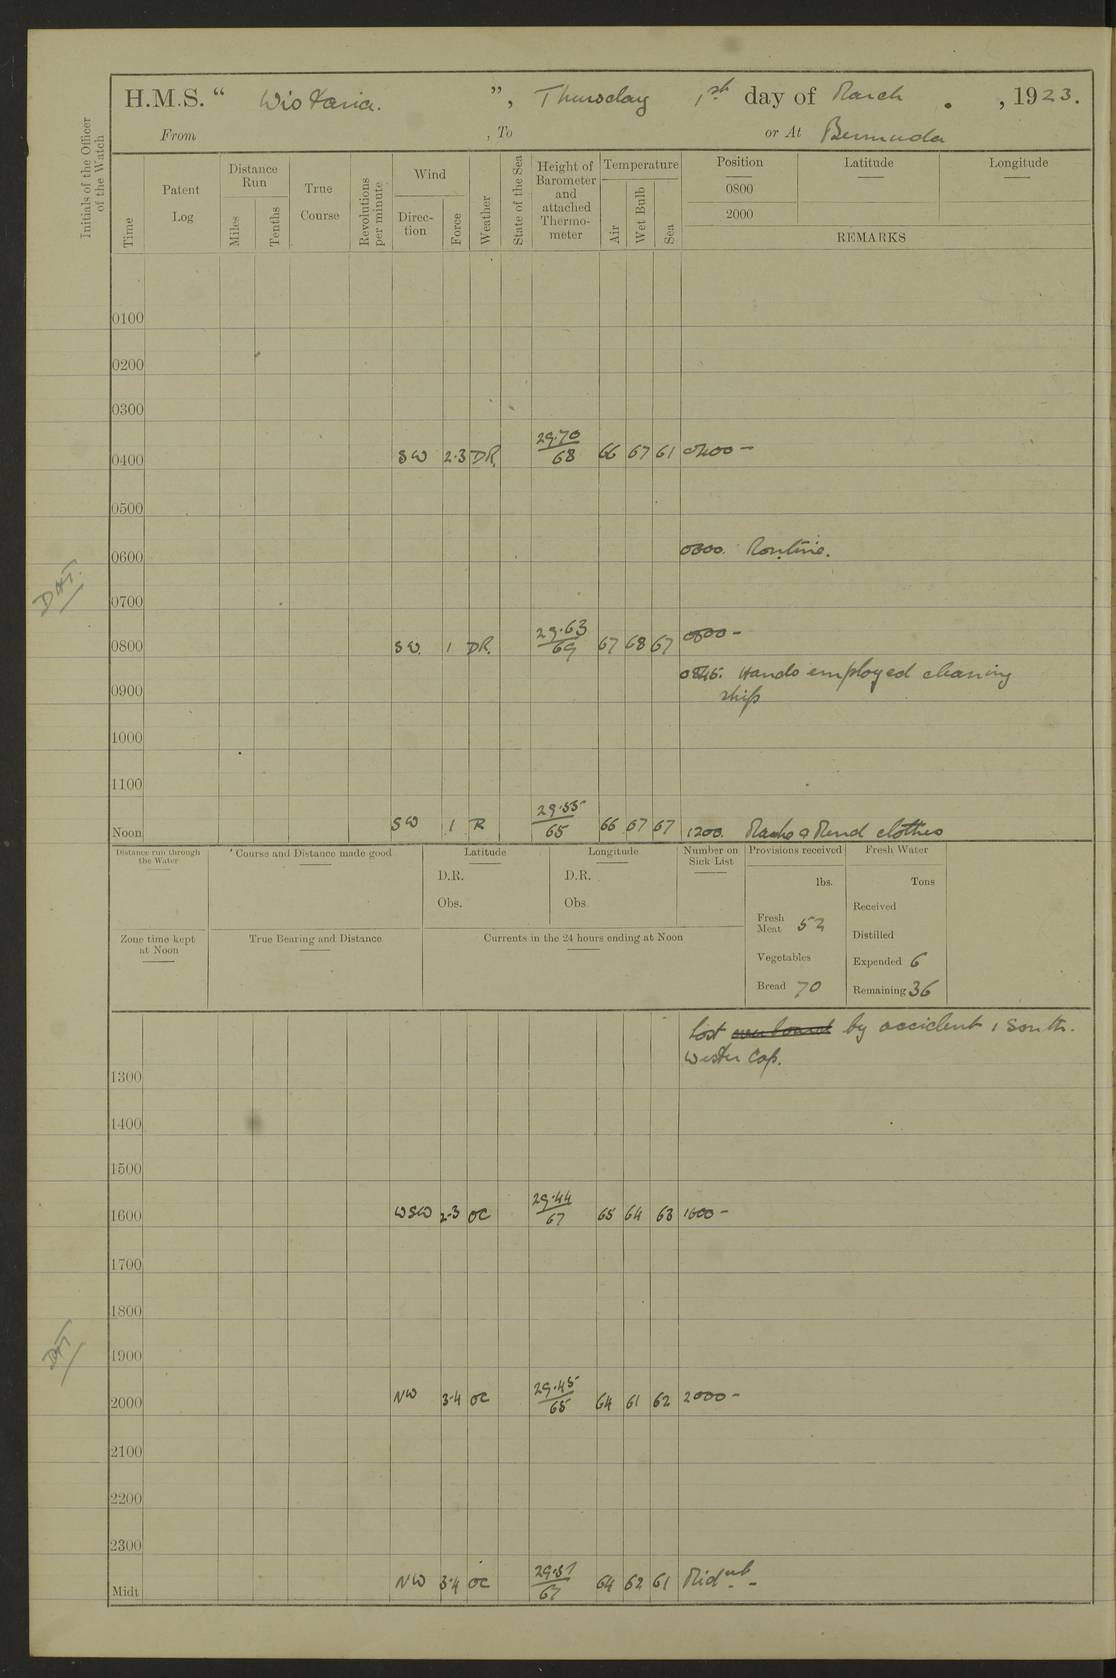 H.M.S. “ Wistaria. ”, Thursday 1st day of March . , 1923.
From , To or At Bermuda
Initials of the Officer of the Watch
Time
Patent Log
Distance Run
Miles
Tenths
True Course
Revolutions per minute
Wind
Direc-tion
Force
Weather
State of the Sea
Height of Barometer and attached Thermo-meter
Temperature
Air
Wet Bulb
Sea
Position Latitude Longitude
0800
2000
REMARKS
0100
0200
0300
0400 SW 2·3 DR. 29·70/68 66 67 61 0400 –
0500
0600 0600. Routine.
D.H.T.
0700
0800 SW. 1 DR. 29·63/69 67 68 67 0800 –
0845. Hands employed cleaning
0900 ship
1000
1100
Noon SW 1 R 29·55/65 66 67 67 1200. Make & Mend clothes
Distance run through the Water
Course and Distance made good
Latitude
D.R.
Obs.
Longitude
D.R.
Obs
Number on Sick List
Provisions received
lbs.
Fresh Meat 52
Vegetables
Bread 70
Fresh Water
Tons
Received
Distilled
Expended 6
Remaining 36
Zone time kept at Noon
True Bearing and Distance
Currents in the 24 hours ending at Noon
Lost overboard by accident 1 South.
Wester Cap.
1300
1400
1500
1600 WSW 2·3 OC 29·44/67 65 64 63 1600 –
1700
1800
1900
DHT
2000 NW 3·4 OC 29·45/65 64 61 62 2000 –
2100
2200
2300
Midt NW 3·4 OC 29·51/67 64 62 61 Midnt. –